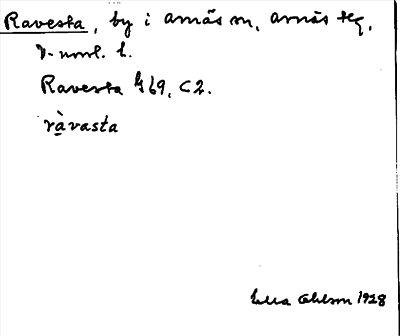 Ravesta, by i Arnäs sn, Arnäs tlg,
V-norrl. l.
Ravesta G 69, C2.
ràvasta
Ohlson 1928